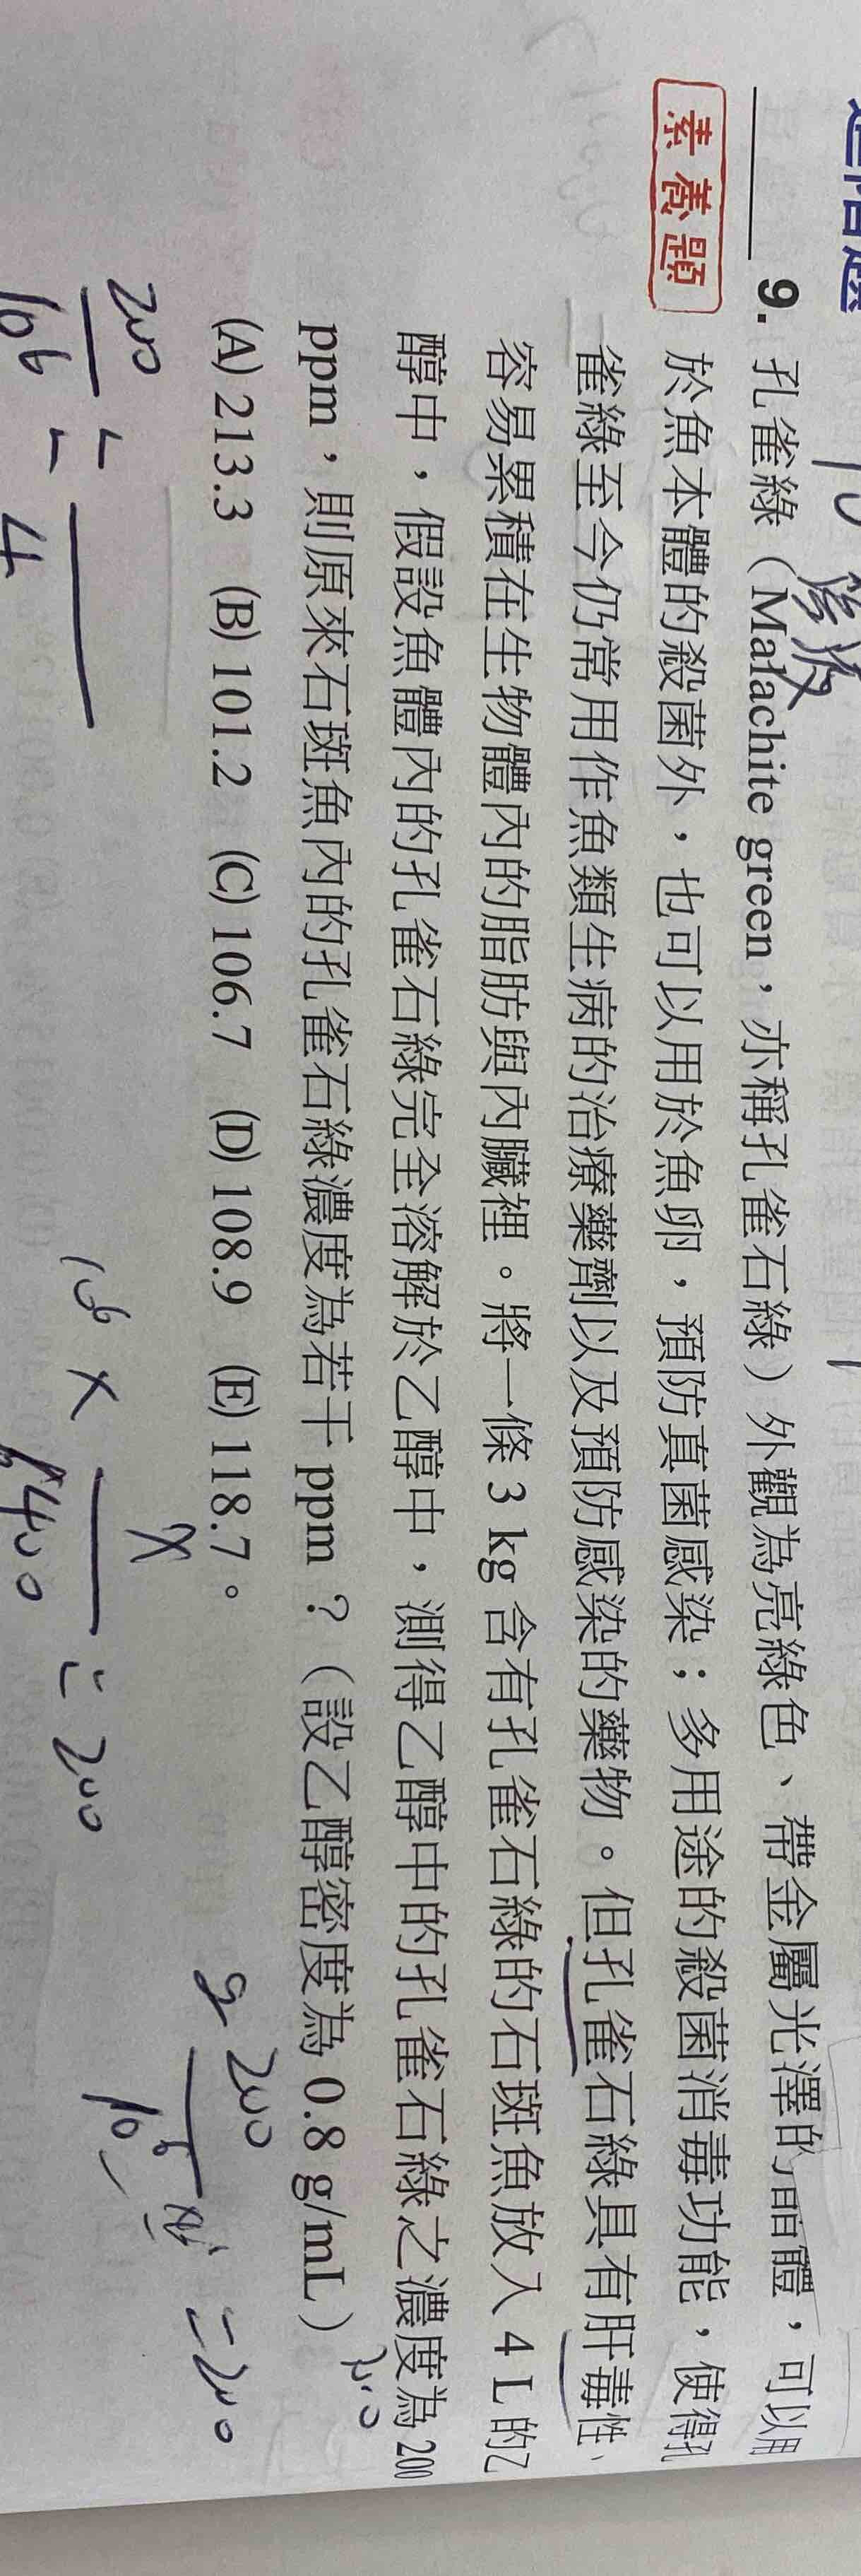 9. 孔雀綠（Malachite green，亦稱孔雀石綠）外觀為亮綠色、帶金屬光澤的晶體，可以用
素養題 於魚本體的殺菌外，也可以用於魚卵，預防真菌感染；多用途的殺菌消毒功能，使得孔
雀綠至今仍常用作魚類生病的治療藥劑以及預防感染的藥物。但孔雀石綠具有肝毒性、
容易累積在生物體內的脂肪與內臟裡。將一條 3 kg 含有孔雀石綠的石斑魚放入 4 L 的乙
醇中，假設魚體內的孔雀石綠完全溶解於乙醇中，測得乙醇中的孔雀石綠之濃度為 200
ppm，則原來石斑魚內的孔雀石綠濃度為若干 ppm？（設乙醇密度為 0.8 g/mL）
(A) 213.3 (B) 101.2 (C) 106.7 (D) 108.9 (E) 118.7。
200
200/10⁶ = /4
10⁶ × x/ = 200
200/10⁶ = 200